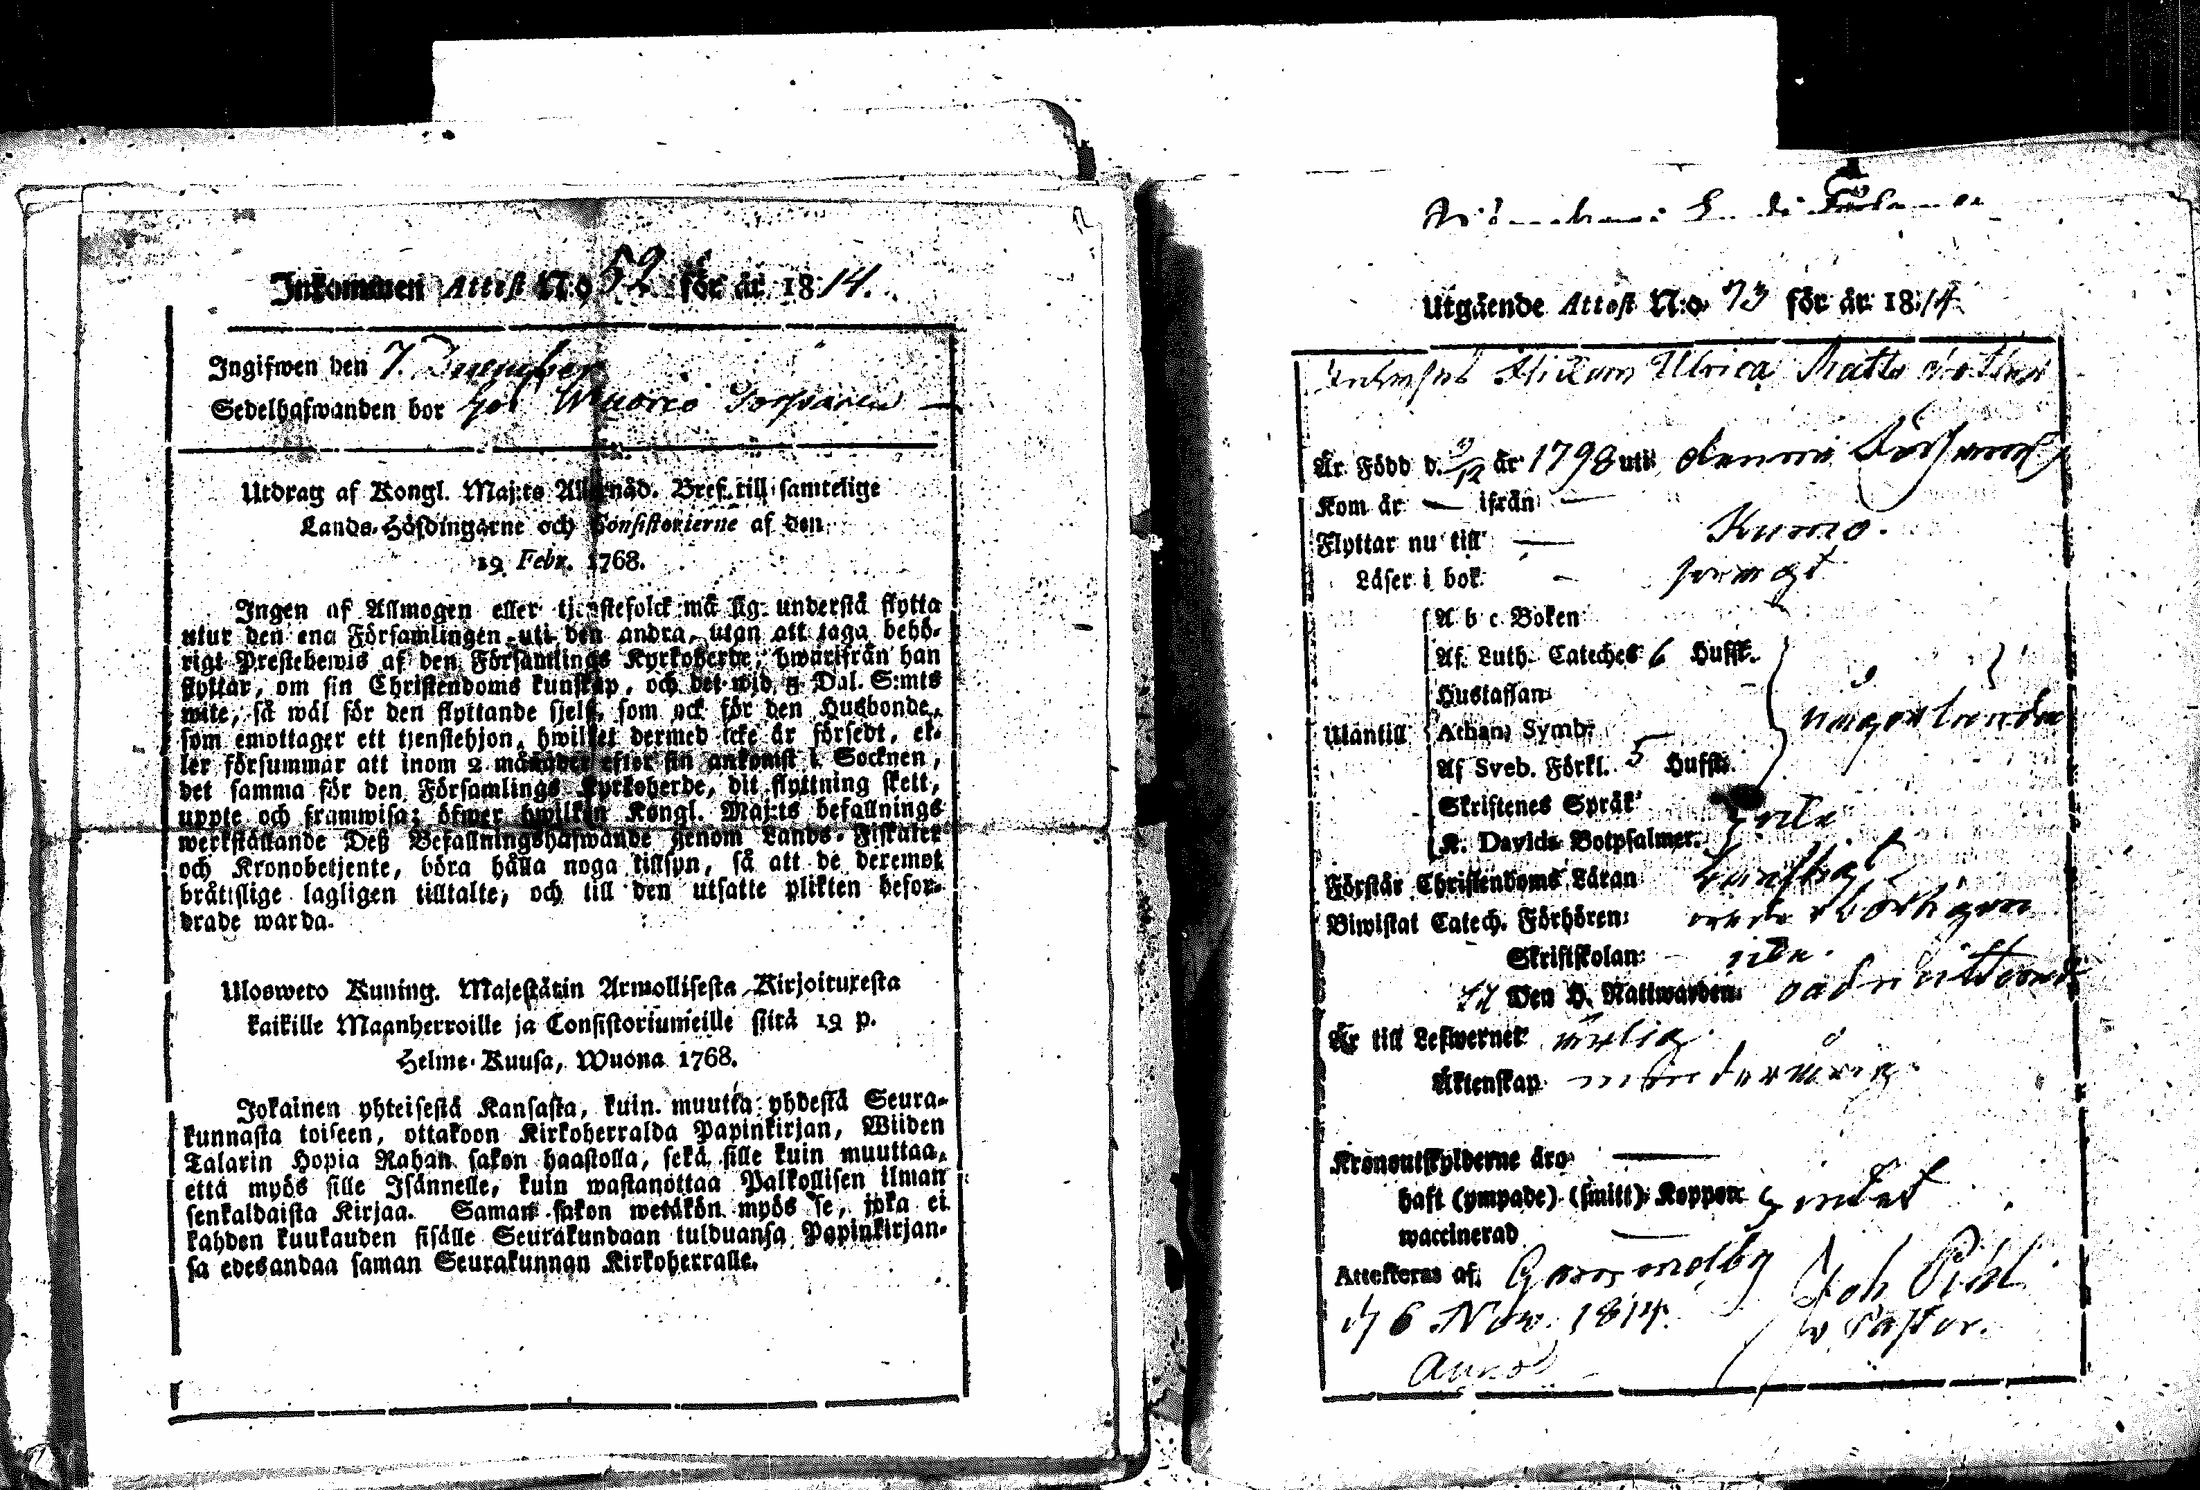 Inkommen Attest N:o 52 för år 1814.
Ingifwen den 7. December
Sedelhafwanden bor hos Wuorio Torparen
Utdrag af Kongl. Maj:ts Allernåd. Bref till samtelige
Lands-Höfdingarne och Consistorierne af den
19 Febr. 1768.
Ingen af Allmogen eller tjenstefolck må sig understå flytta
utur den ena Församlingen uti den andra, utan att taga behö-
rigt Prestebewis af den Församlings Kyrkoherde, hwarifrån han
flyttar, om sin Christendoms kunskap, och det wid 5 Dal. S:mts
wite, så wäl för den flyttande sjelf, som ock för den Husbonde,
som emottager ett tjenstehjon, hwilket dermed icke är försedt, el-
ler försummar att inom 2 månader efter sin ankomst i Socknen,
det samma för den Församlings Kyrkoherde, dit flyttning skett,
uppte och framwisa; öfwer hwilken Kongl. Maj:ts befallnings
werkställande Deß Befallningshafwande genom Lands-Fiskaler
och Kronobetjente, böra hålla noga tillsyn, så att de deremot
bråtislige lagligen tilltalte, och till den utsatte plikten befor-
drade warda.
Uloswero Kuning. Majestätin Armollisesta Kirjoituxesta
kaikille Maanherroille ja Consistoriumeille siitä 19 p.
Helme-Kuusa, Wuona 1768.
Jokainen yhteisestä Kansasta, kuin muutta yhdestä Seura-
kunnasta toiseen, ottakoon Kirkoherralda Papinkirjan, Wiiden
Talarin Hopia Rahan sakon haastolla, sekä sille kuin muuttaa,
että myös sille Isännelle, kuin wastanottaa Palkollisen ilman
senkaldaista Kirjaa. Saman sakon wetäkön myös se, joka ei
kahden kuukauden sisälle Seurakundaan tulduansa Papinkirjan-
sa edesandaa saman Seurakunnan Kirkoherralle.
Utgående Attest N:o 73 för år 1814
Ulrica Matts dotter
Är Född d. 9/12 år 1798 uti denna Församl
Kom år — ifrån —
Flyttar nu till — Kumo.
Läser i bok — swagt
A b c Boken
Af Luth. Cateches 6 Hufst.
Hustaflan
Utantill Athan. Symb.
någorlunda
Af Sveb. Förkl. 5 Hufst.
Skriftenes Språk
K. Davids Botpsalmer. icke
Förstår Christendoms Läran
Biwistat Catech. Förhören
Skriftskolan icke.
Till Den H. Nattwarden oadmitterad
Är till Lefwernet ärlig
Äktenskap minderårig
Kronoutskylderne äro —
haft (ympade) (smitt) Koppor
waccinerad —
Attesteras af Gammelby Joh Pihl
d 6 Nov. 1814. v Pastor.